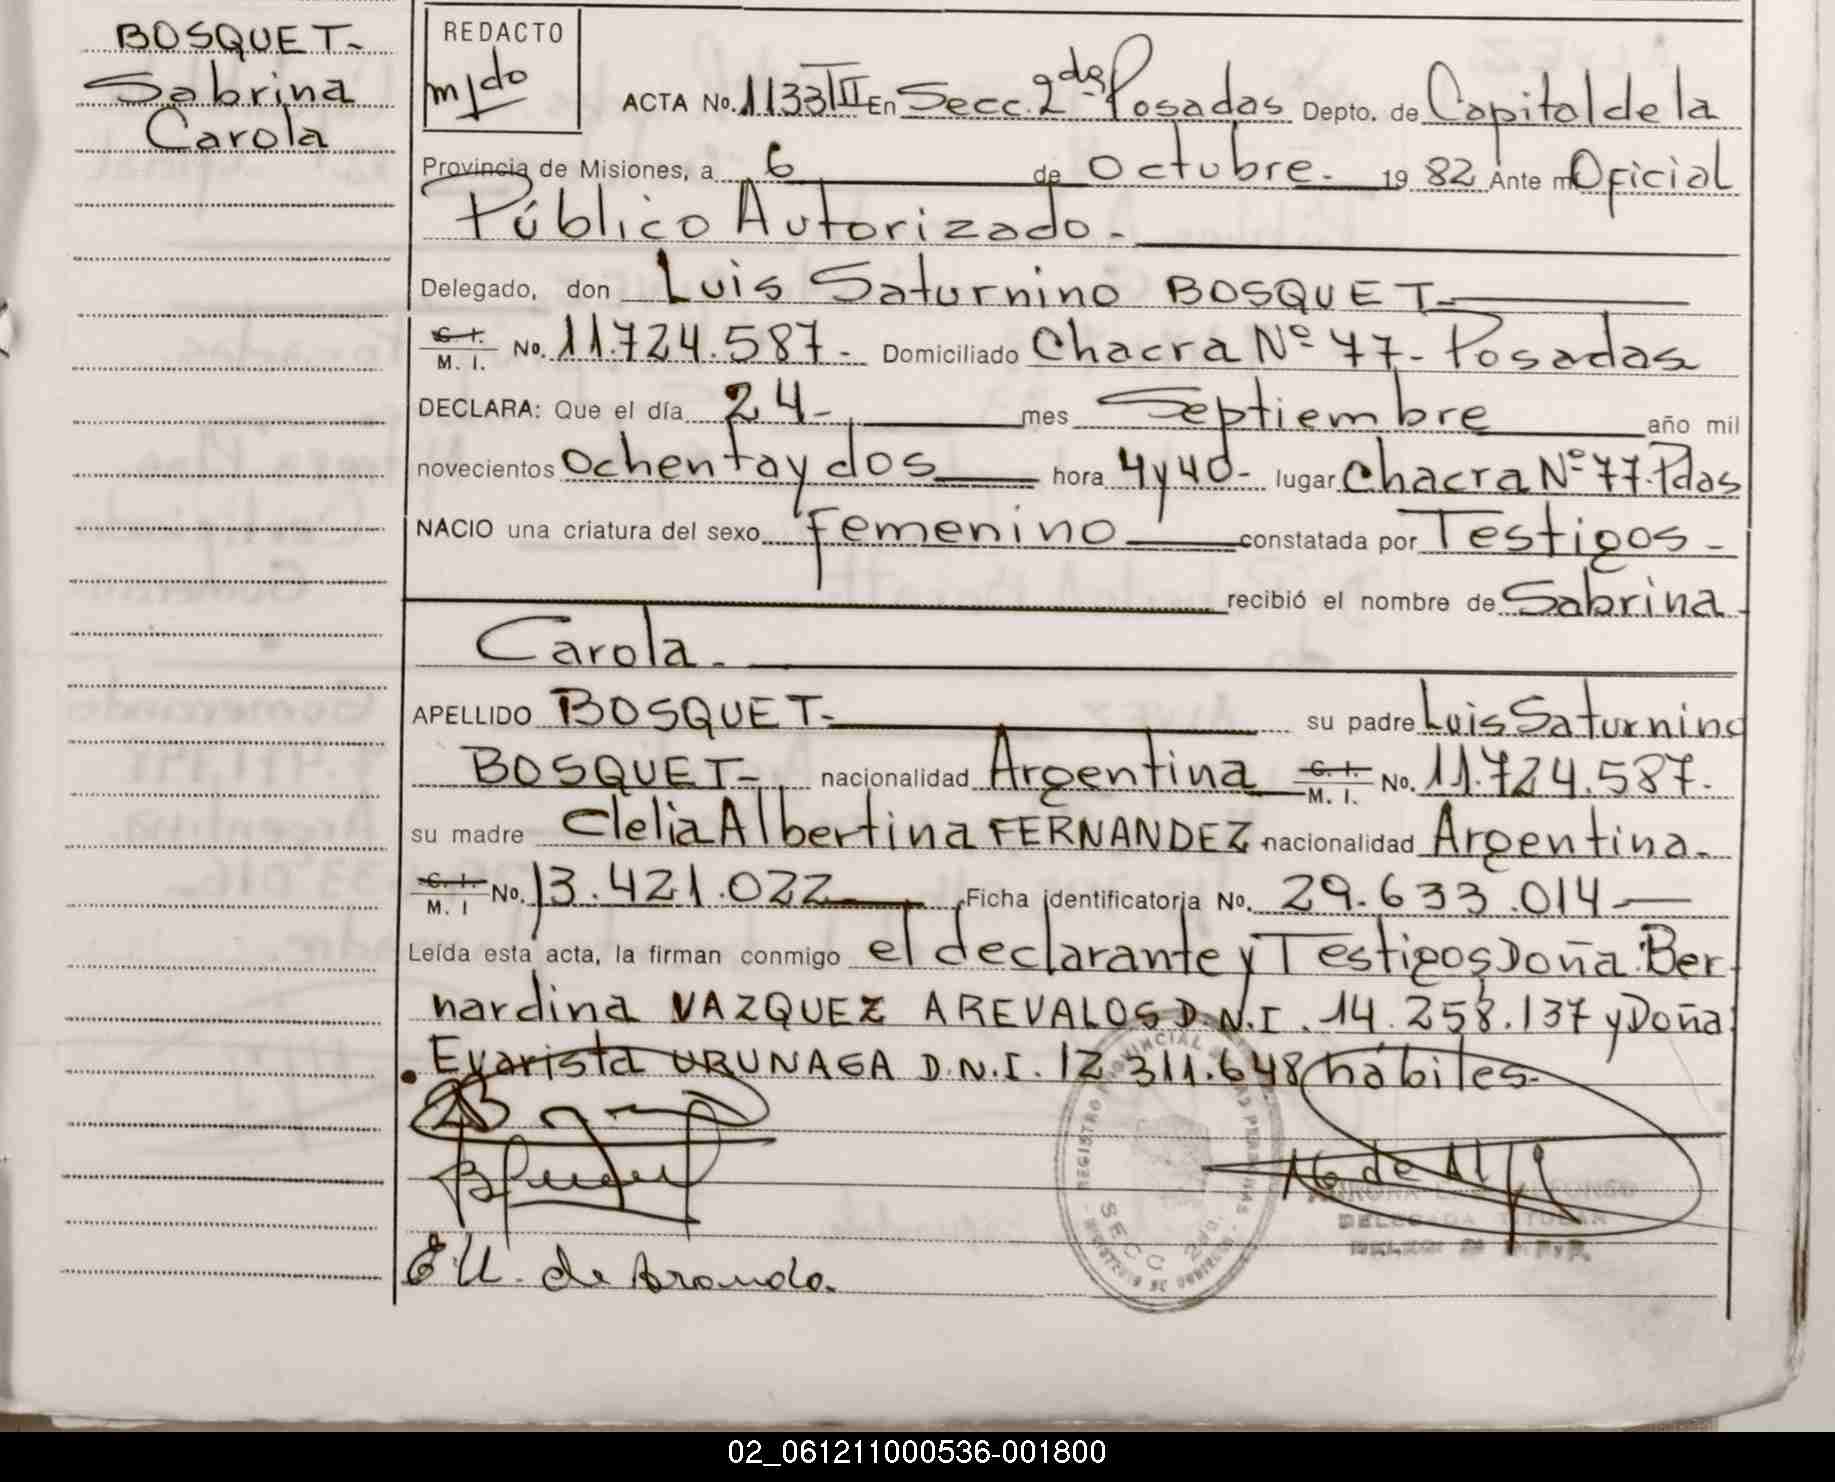 BOSQUET-
Sabrina
Carola
REDACTO
m/do
ACTA No. 1133 III En Secc. 2da Posadas Depto. de Capital de la
Provincia de Misiones, a 6 de Octubre. 19 82 Ante mí Oficial
Público Autorizado.-
Delegado, don Luis Saturnino BOSQUET-
C. I. M. I. No. 11.724.587.- Domiciliado Chacra Nº 77- Posadas
DECLARA: Que el día 24- mes Septiembre año mil
novecientos Ochenta y dos hora 4 y 40- lugar Chacra Nº 77. Pdas
NACIO una criatura del sexo femenino constatada por Testigos-
recibió el nombre de Sabrina
Carola.-
APELLIDO BOSQUET- su padre Luis Saturnino
BOSQUET- nacionalidad Argentina C. I. M. I. No. 11.724.587.
su madre Clelia Albertina FERNANDEZ nacionalidad Argentina.
C. I. M. I No. 13.421.022 Ficha identificatoria No. 29.633.014
Leída esta acta, la firman conmigo el declarante y Testigos Doña Ber
nardina VAZQUEZ AREVALOS D.N.I. 14.258.137 y Doña
Evarista URUNAGA D.N.I. 12 311.648 hábiles.
E U. de Aranda.
REGISTRO PROVINCIAL DE LAS PERSONAS
SECC 2da.
DELEGADA TITULAR
02_061211000536-001800